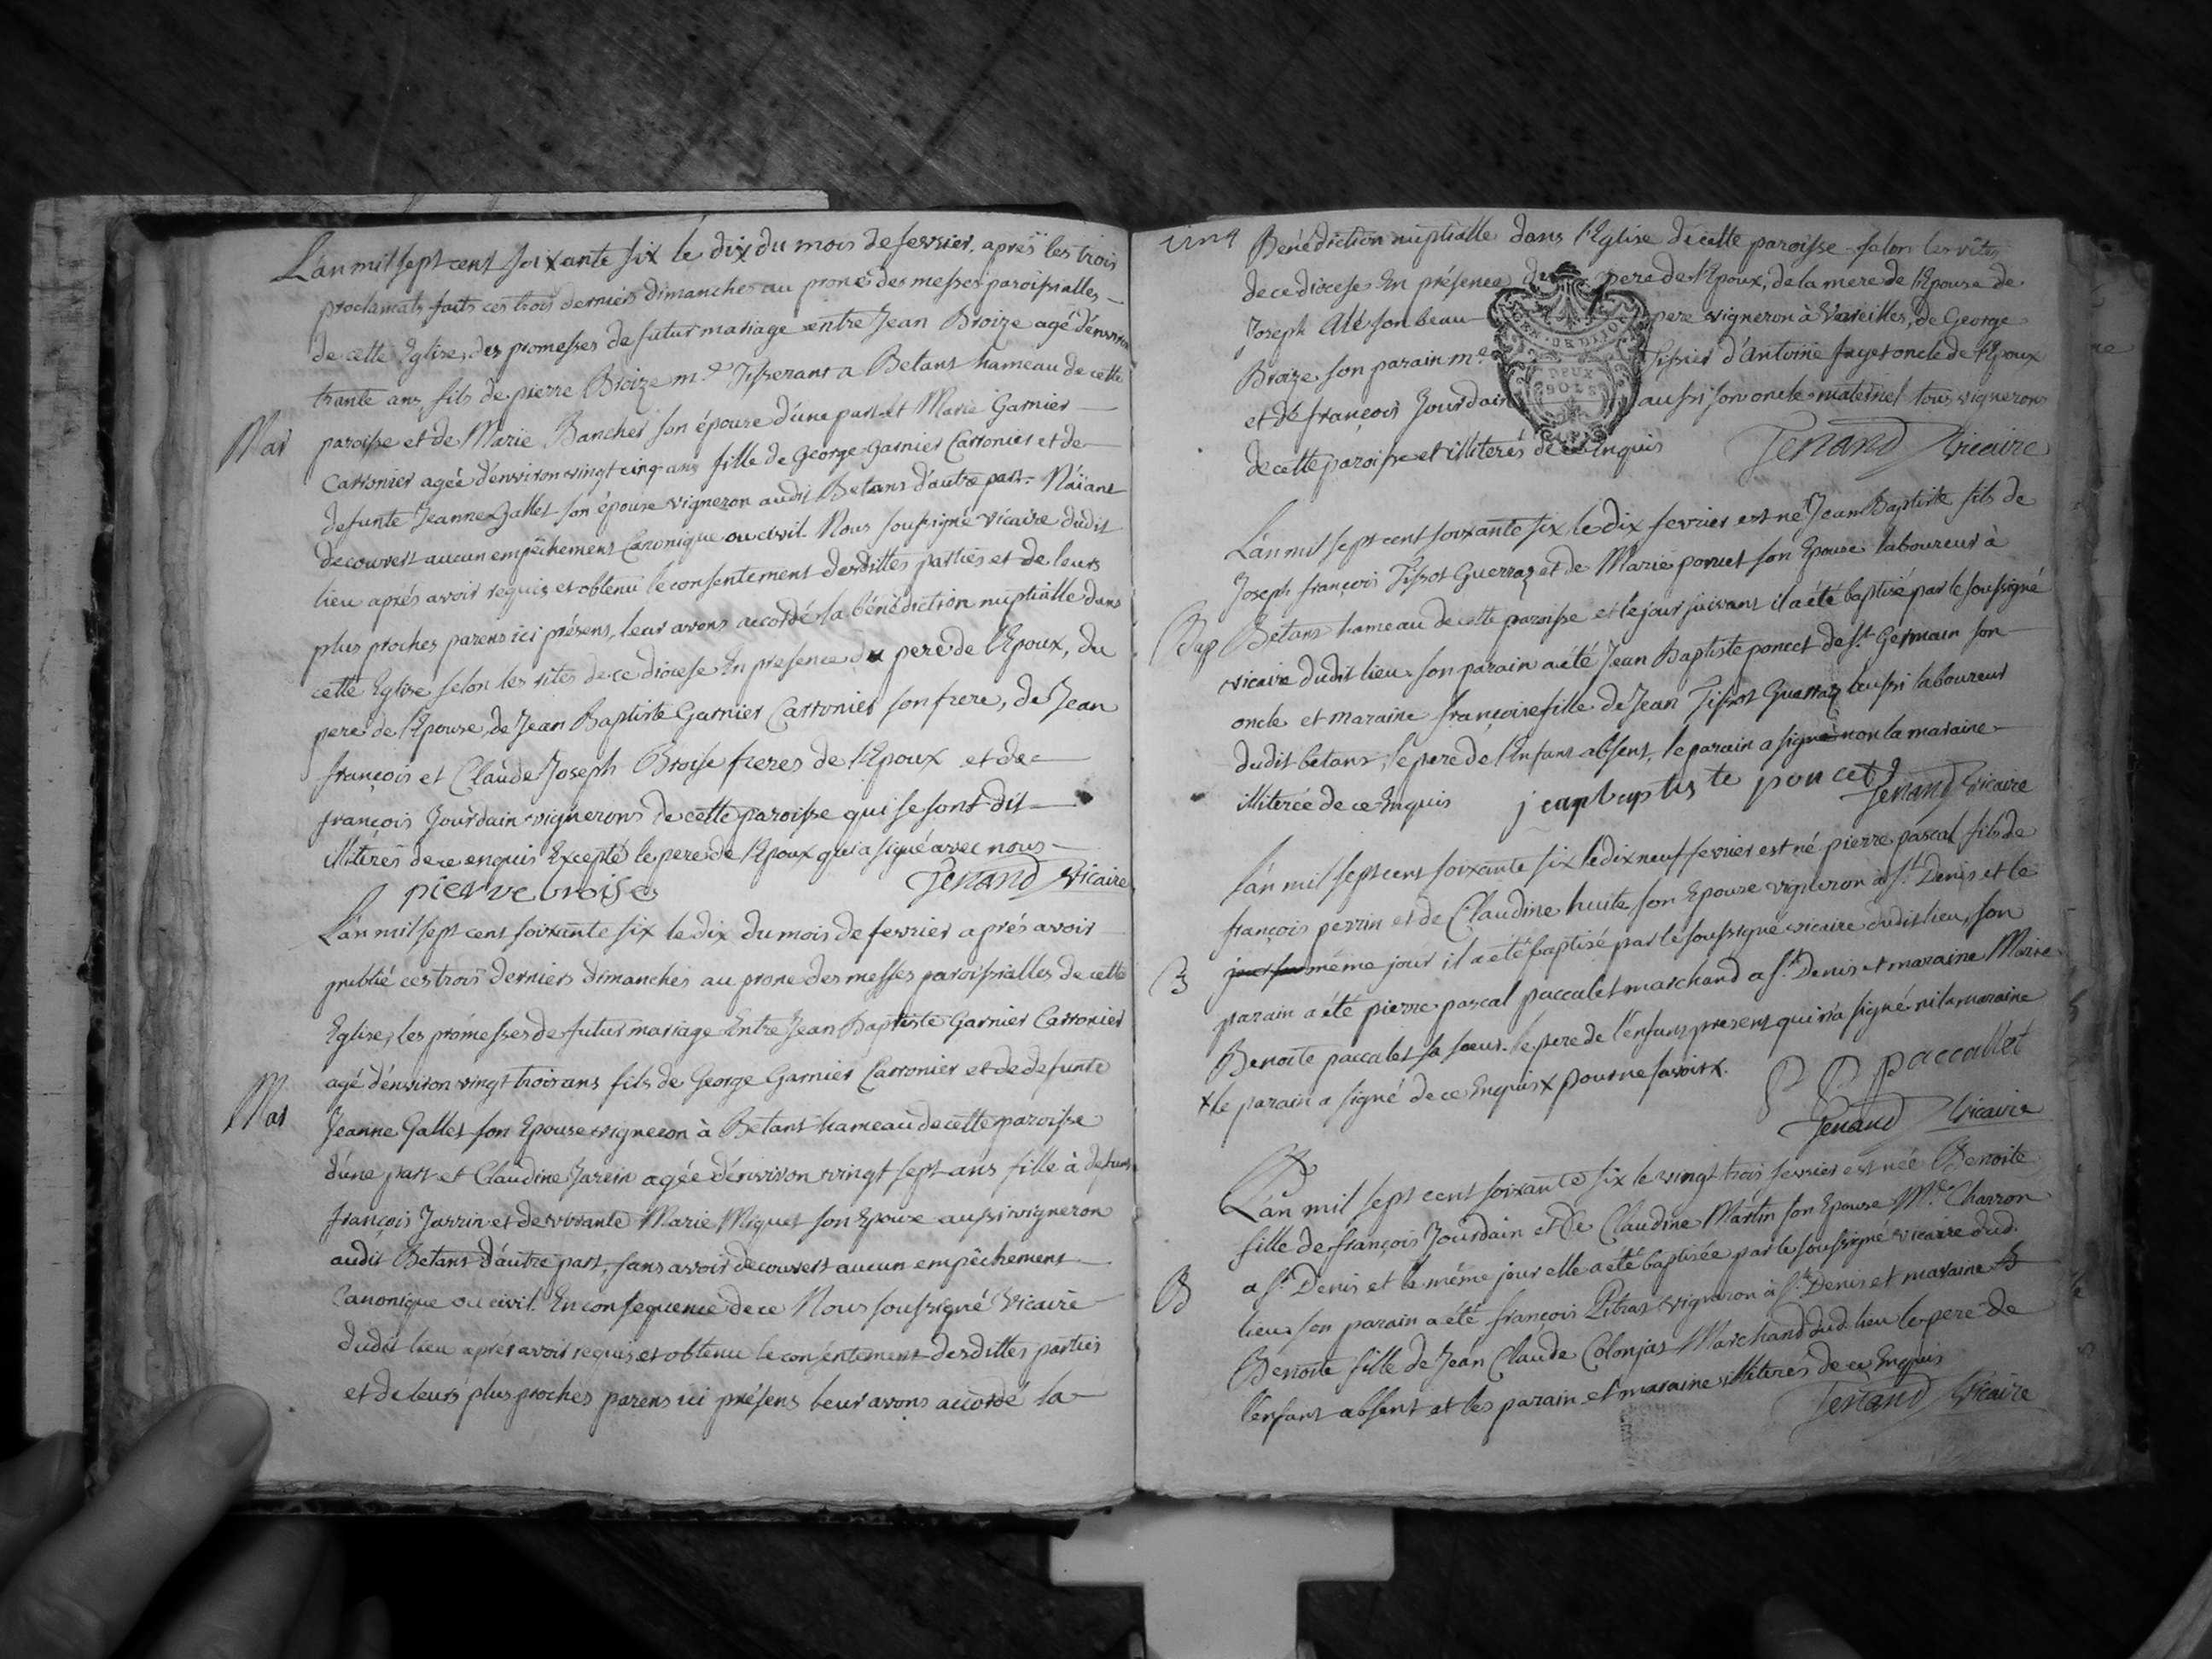 L'an mil sept cent soixante six le dix du mois de fevrier, après les trois
proclamats faits ces trois derniers dimanches au prone des messes paroissialles
de cette Eglise, des promesses de futur mariage entre Jean Broize agé d'environ
trante ans fils de pierre Broize me Tisserant a Betans hameau de cette
Mar
paroisse et de Marie Bancher son épouse d'une part et Marie Garnier
Carronier agée d'environ vingt cinq ans fille de George Garnier Carronier et de
defunte Jeanne Gallet son épouse vigneron audit Betans d'autre part. N'aïant
decouvert aucun empêchement Canonique ou civil. Nous soussigné vicaire dudit
lieu aprés avoir requis et obtenu le consentement desdittes parties et de leurs
plus proches parens ici présens, leur avons accordé la bénédiction nuptialle dans
cette Eglise selon les rites de ce diocese En presence du pere de l'Epoux, du
pere de l'Epouse, de Jean Baptiste Garnier Carronier son frere, de Jean
françois et Claude Joseph Broise freres de l'Epoux et de
françois Jourdain vignerons de cette paroisse qui se sont dit
illiterés de ce enquis Excepté le pere de l'Epoux qui a signé avec nous
pierre broise Tenand Vicaire
L'an mil sept cent soixante six le dix du mois de fevrier aprés avoir
publié ces trois derniers dimanches au prone des messes paroissialles de cette
Eglise, les promesses de futur mariage Entre Jean Baptiste Garnier Carronier
agé d'environ vingt trois ans fils de George Garnier Carronier et de defunte
Mar
Jeanne Gallet son Epouse vigneron à Betans hameau de cette paroisse
d'une part et Claudine Jarrin agée d'environ vingt sept ans fille à defunt
françois Jarrin et de vivante Marie Miguet son Epouse aussi vigneron
audit Betans d'autre part, sans avoir decouvert aucun empêchement
Canonique ou civil. En consequence de ce Nous soussigné Vicaire
dudit lieu aprés avoir requis et obtenu le consentement desdittes parties
et de leurs plus proches parens ici présens leur avons accordé la
cinq
Bénédiction nuptialle dans l'Eglise de cette paroisse selon les rites
de ce diocese En présence du pere de l'Epoux, de la mere de l'Epouse de
Joseph Alé son beau pere vigneron à Vareilles, de George
Broize son parain me Tissier d'Antoine fayet oncle de l'Epoux
et de françois Jourdain aussi son oncle maternel tous vignerons
de cette paroisse et illiterés de ce Enquis Tenand Vicaire
L'an mil sept cent soixante six le dix fevrier est né Jean Baptiste fils de
Joseph françois Tissot Guerraz et de Marie poncet son Epouse laboureur à
Bap
Betans hameau de cette paroisse et le jour suivant il a été baptisé par le soussigné
vicaire dudit lieu. son parain a été Jean Baptiste poncet de St Germain son
oncle et maraine françoise fille de Jean Tissot Guerraz aussi laboureur
dudit betans, le pere de l'Enfant absent, le parain a signé non la maraine
illiterée de ce Enquis jean baptiste poncet Tenand Vicaire
L'an mil sept cent soixante six le dix neuf fevrier est né pierre pascal fils de
françois perrin et de Claudine huite son Epouse vigneron à St Denis et le
B
même jour il a été baptisé par le soussigné vicaire dudit lieu, son
parain a été pierre pascal paccalet marchand a St Denis et maraine Marie
Benoite paccalet sa soeur. le pere de l'enfant present qui n'a signé ni la maraine
x le parain a signé de ce Enquis x pour ne savoir x.
P P paccallet
Tenand Vicaire
L'an mil sept cent soixante six le vingt trois fevrier est née Benoite
fille de françois Jourdain et de Claudine Martin son Epouse Me Charron
B
a St Denis et le même jour elle a été baptisée par le soussigné vicaire dud.
lieu. son parain a été françois Pitras vigneron à St Denis et maraine
Benoite fille de Jean Claude Colonjas Marchand dud. lieu le pere de
l'enfant absent et les parain et maraine illiterés de ce Enquis
Tenand Vicaire